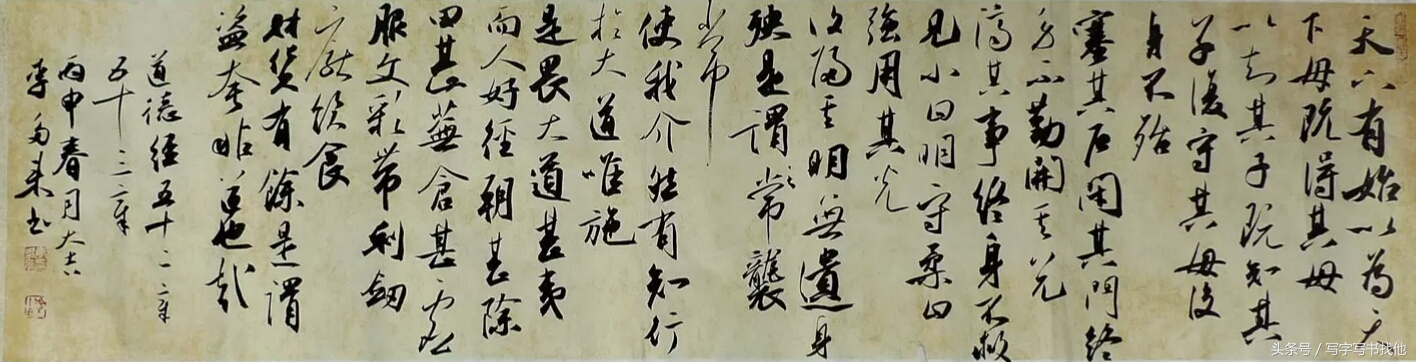 天下有始以為天
下母既得其母
以知其子既知其
子復守其母没
身不殆
塞其兌閉其門終
身不勤開其兌
濟其事終身不救
見小曰明守柔曰
強用其光
復歸其明無遺身
殃是謂常襲
使我介然有知行
於大道唯施
是畏大道甚夷
而人好徑朝甚除
田甚蕪倉甚虛
服文彩帶利劍
厭飲食
財貨有餘是謂
盜夸非道也哉
道德經五十二章
五十三章
丙申春月大吉
李来书
头条号 / 写字写书找他